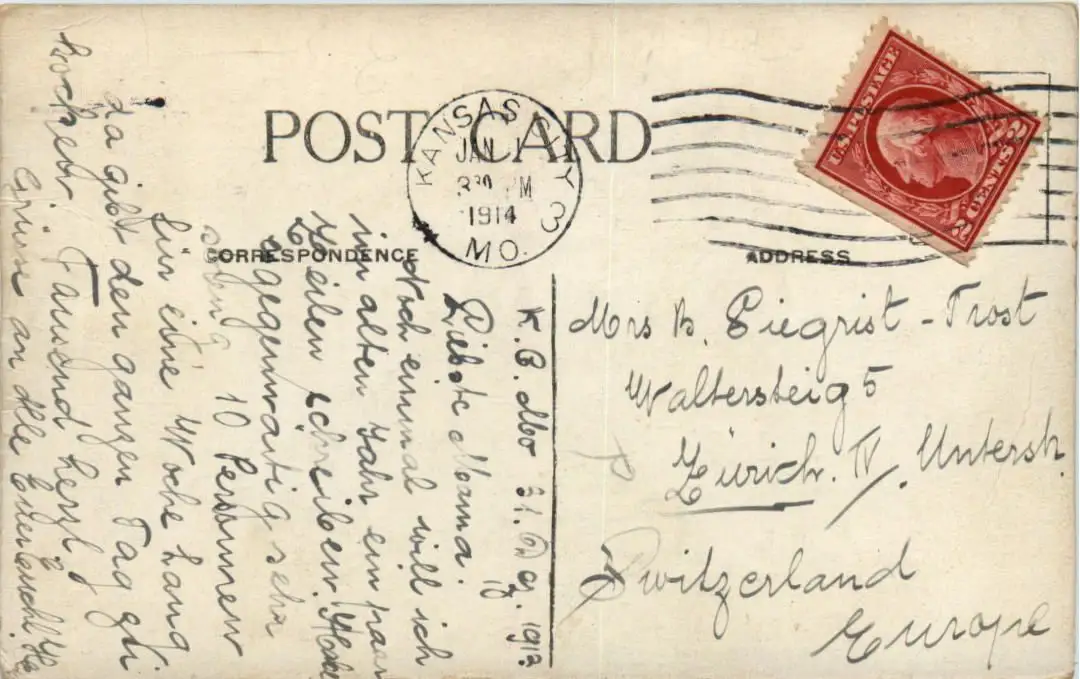 POST CARD
KANSAS CITY 3
JAN 1
3 30 PM
1914
MO.
U.S. POSTAGE
2 CENTS 2
CORRESPONDENCE
ADDRESS
K. C. Mo 31. Dez. 1913
Liebste Mama.
Noch einmal will ich
im alten Jahr ein paar
Zeilen schreiben.
gegenwärtig sehr
10 Personen
für eine Woche lang.
da gibt den ganzen Tag
Tausend herzl.
an alle
Mrs B. Siegrist - Trost
Waltersteig 5
Zürich. IV. Unterstr.
Switzerland
Europe